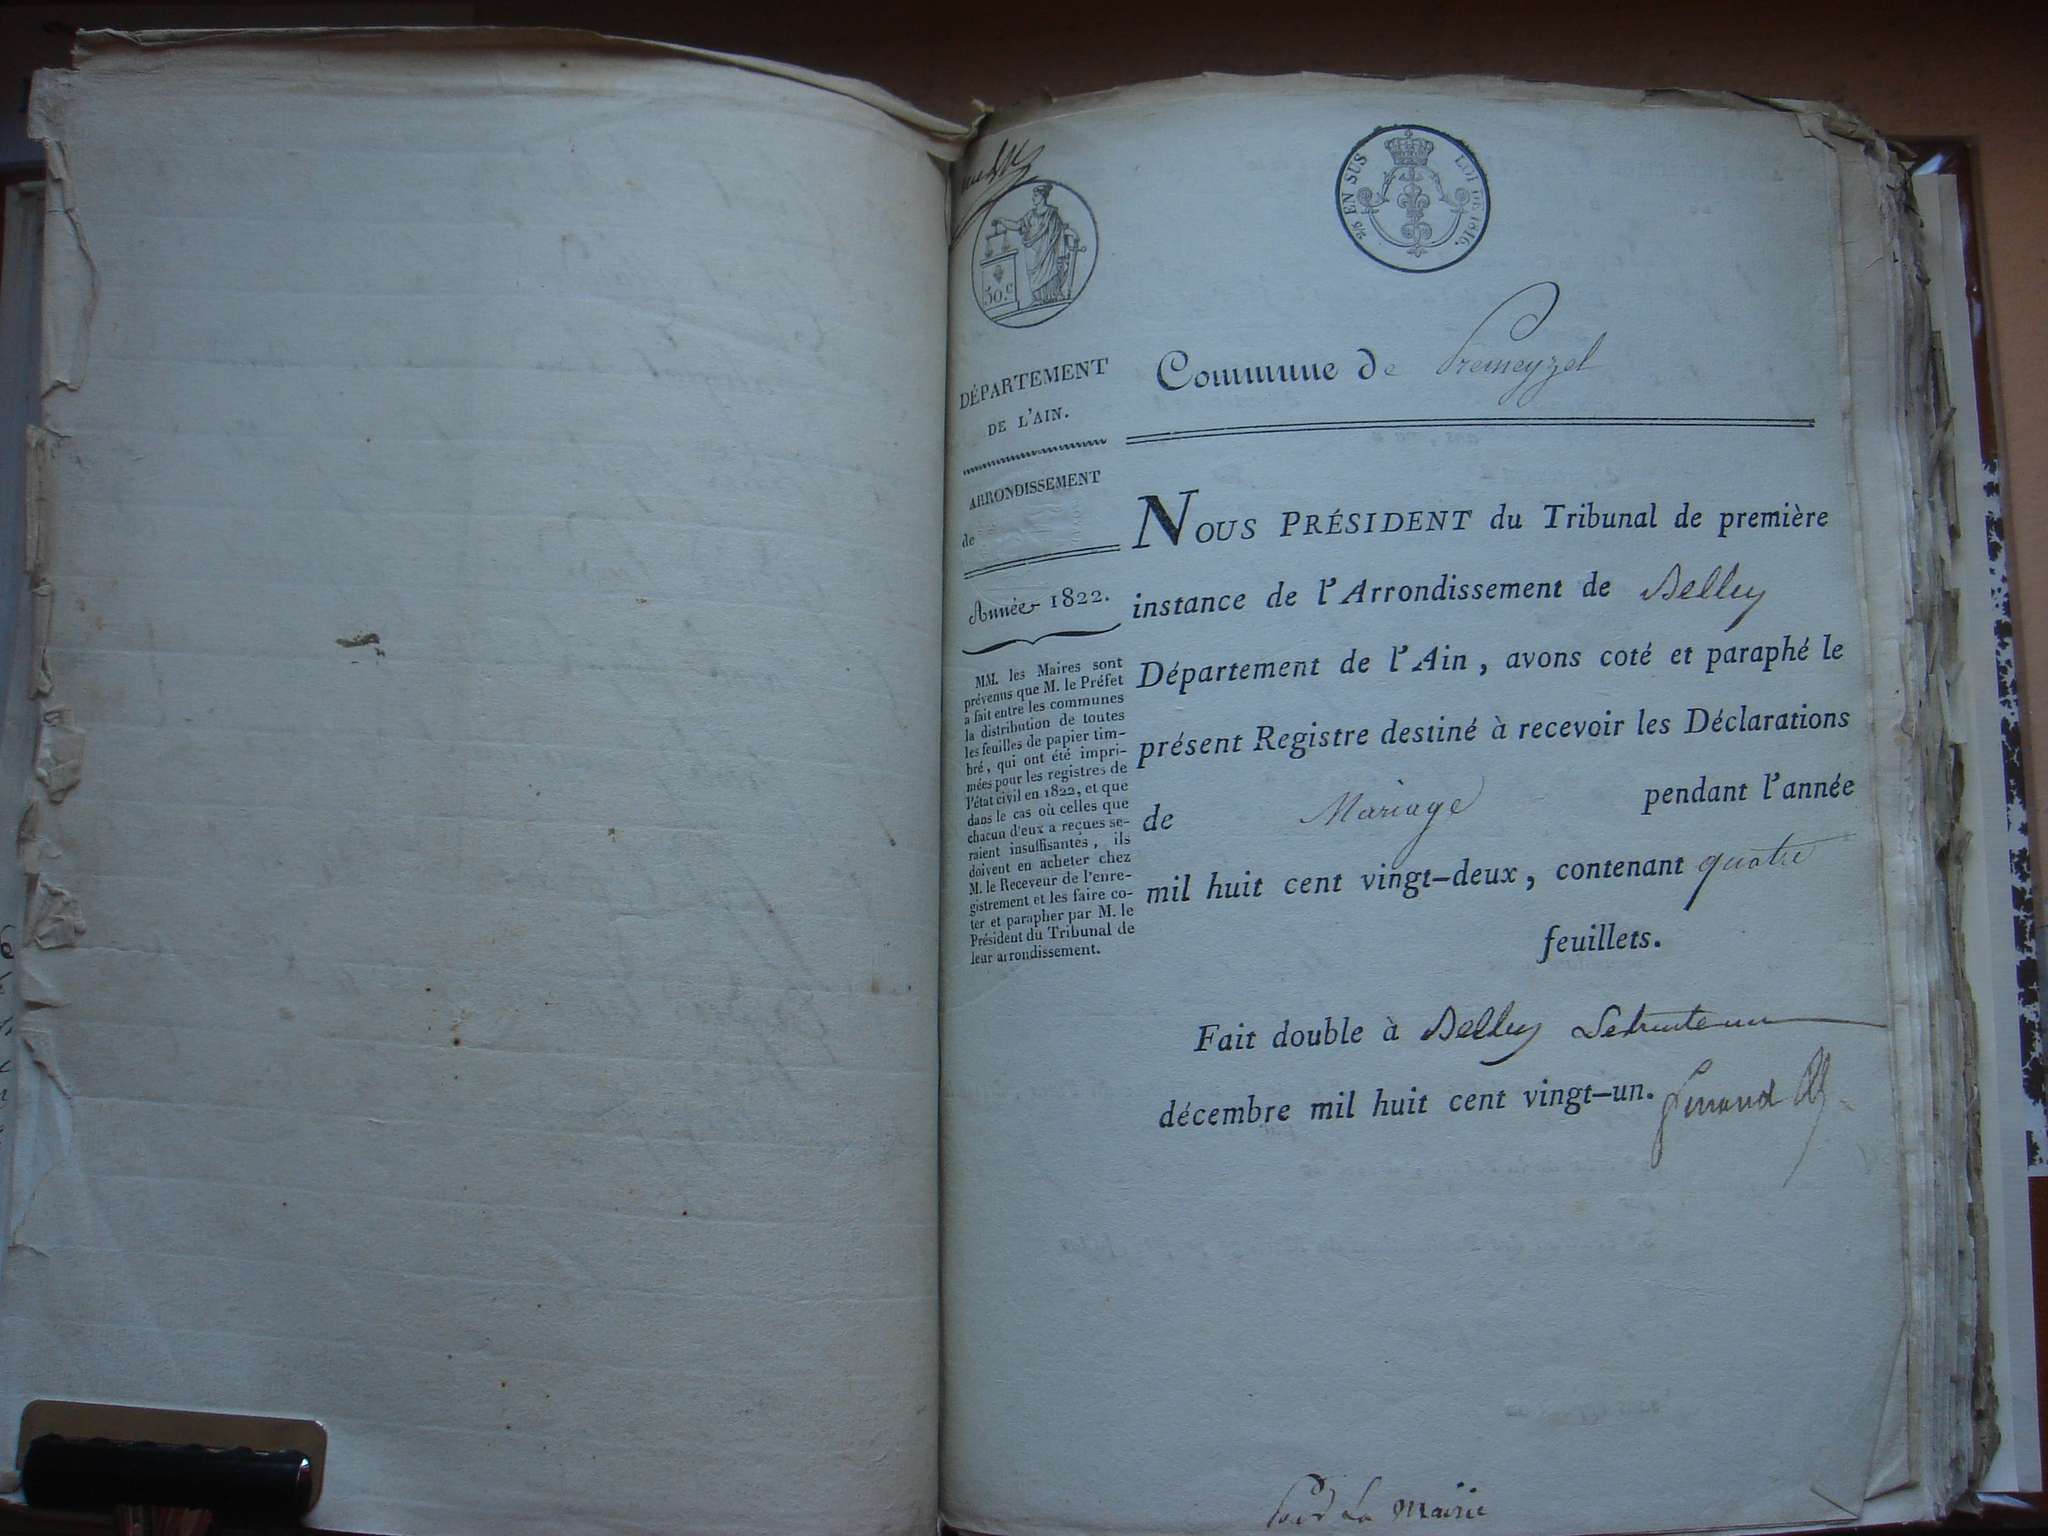 50.c
25 EN SUS LOI DE 1816.
DÉPARTEMENT
DE L'AIN.
ARRONDISSEMENT
de
Année 1822.
MM. les Maires sont
prévenus que M. le Préfet
a fait entre les communes
la distribution de toutes
les feuilles de papier tim-
bré, qui ont été impri-
mées pour les registres de
l'état civil en 1822, et que
dans le cas où celles que
chacun d'eux a reçues se-
raient insuffisantes, ils
doivent en acheter chez
M. le Receveur de l'enre-
gistrement et les faire co-
ter et parapher par M. le
Président du Tribunal de
leur arrondissement.
Commune de Premeyzel
NOUS PRÉSIDENT du Tribunal de première
instance de l'Arrondissement de Belley
Département de l'Ain, avons coté et paraphé le
présent Registre destiné à recevoir les Déclarations
de Mariage pendant l'année
mil huit cent vingt-deux, contenant quatre
feuillets.
Fait double à Belley Le trente un
décembre mil huit cent vingt-un.
Pour La Mairie